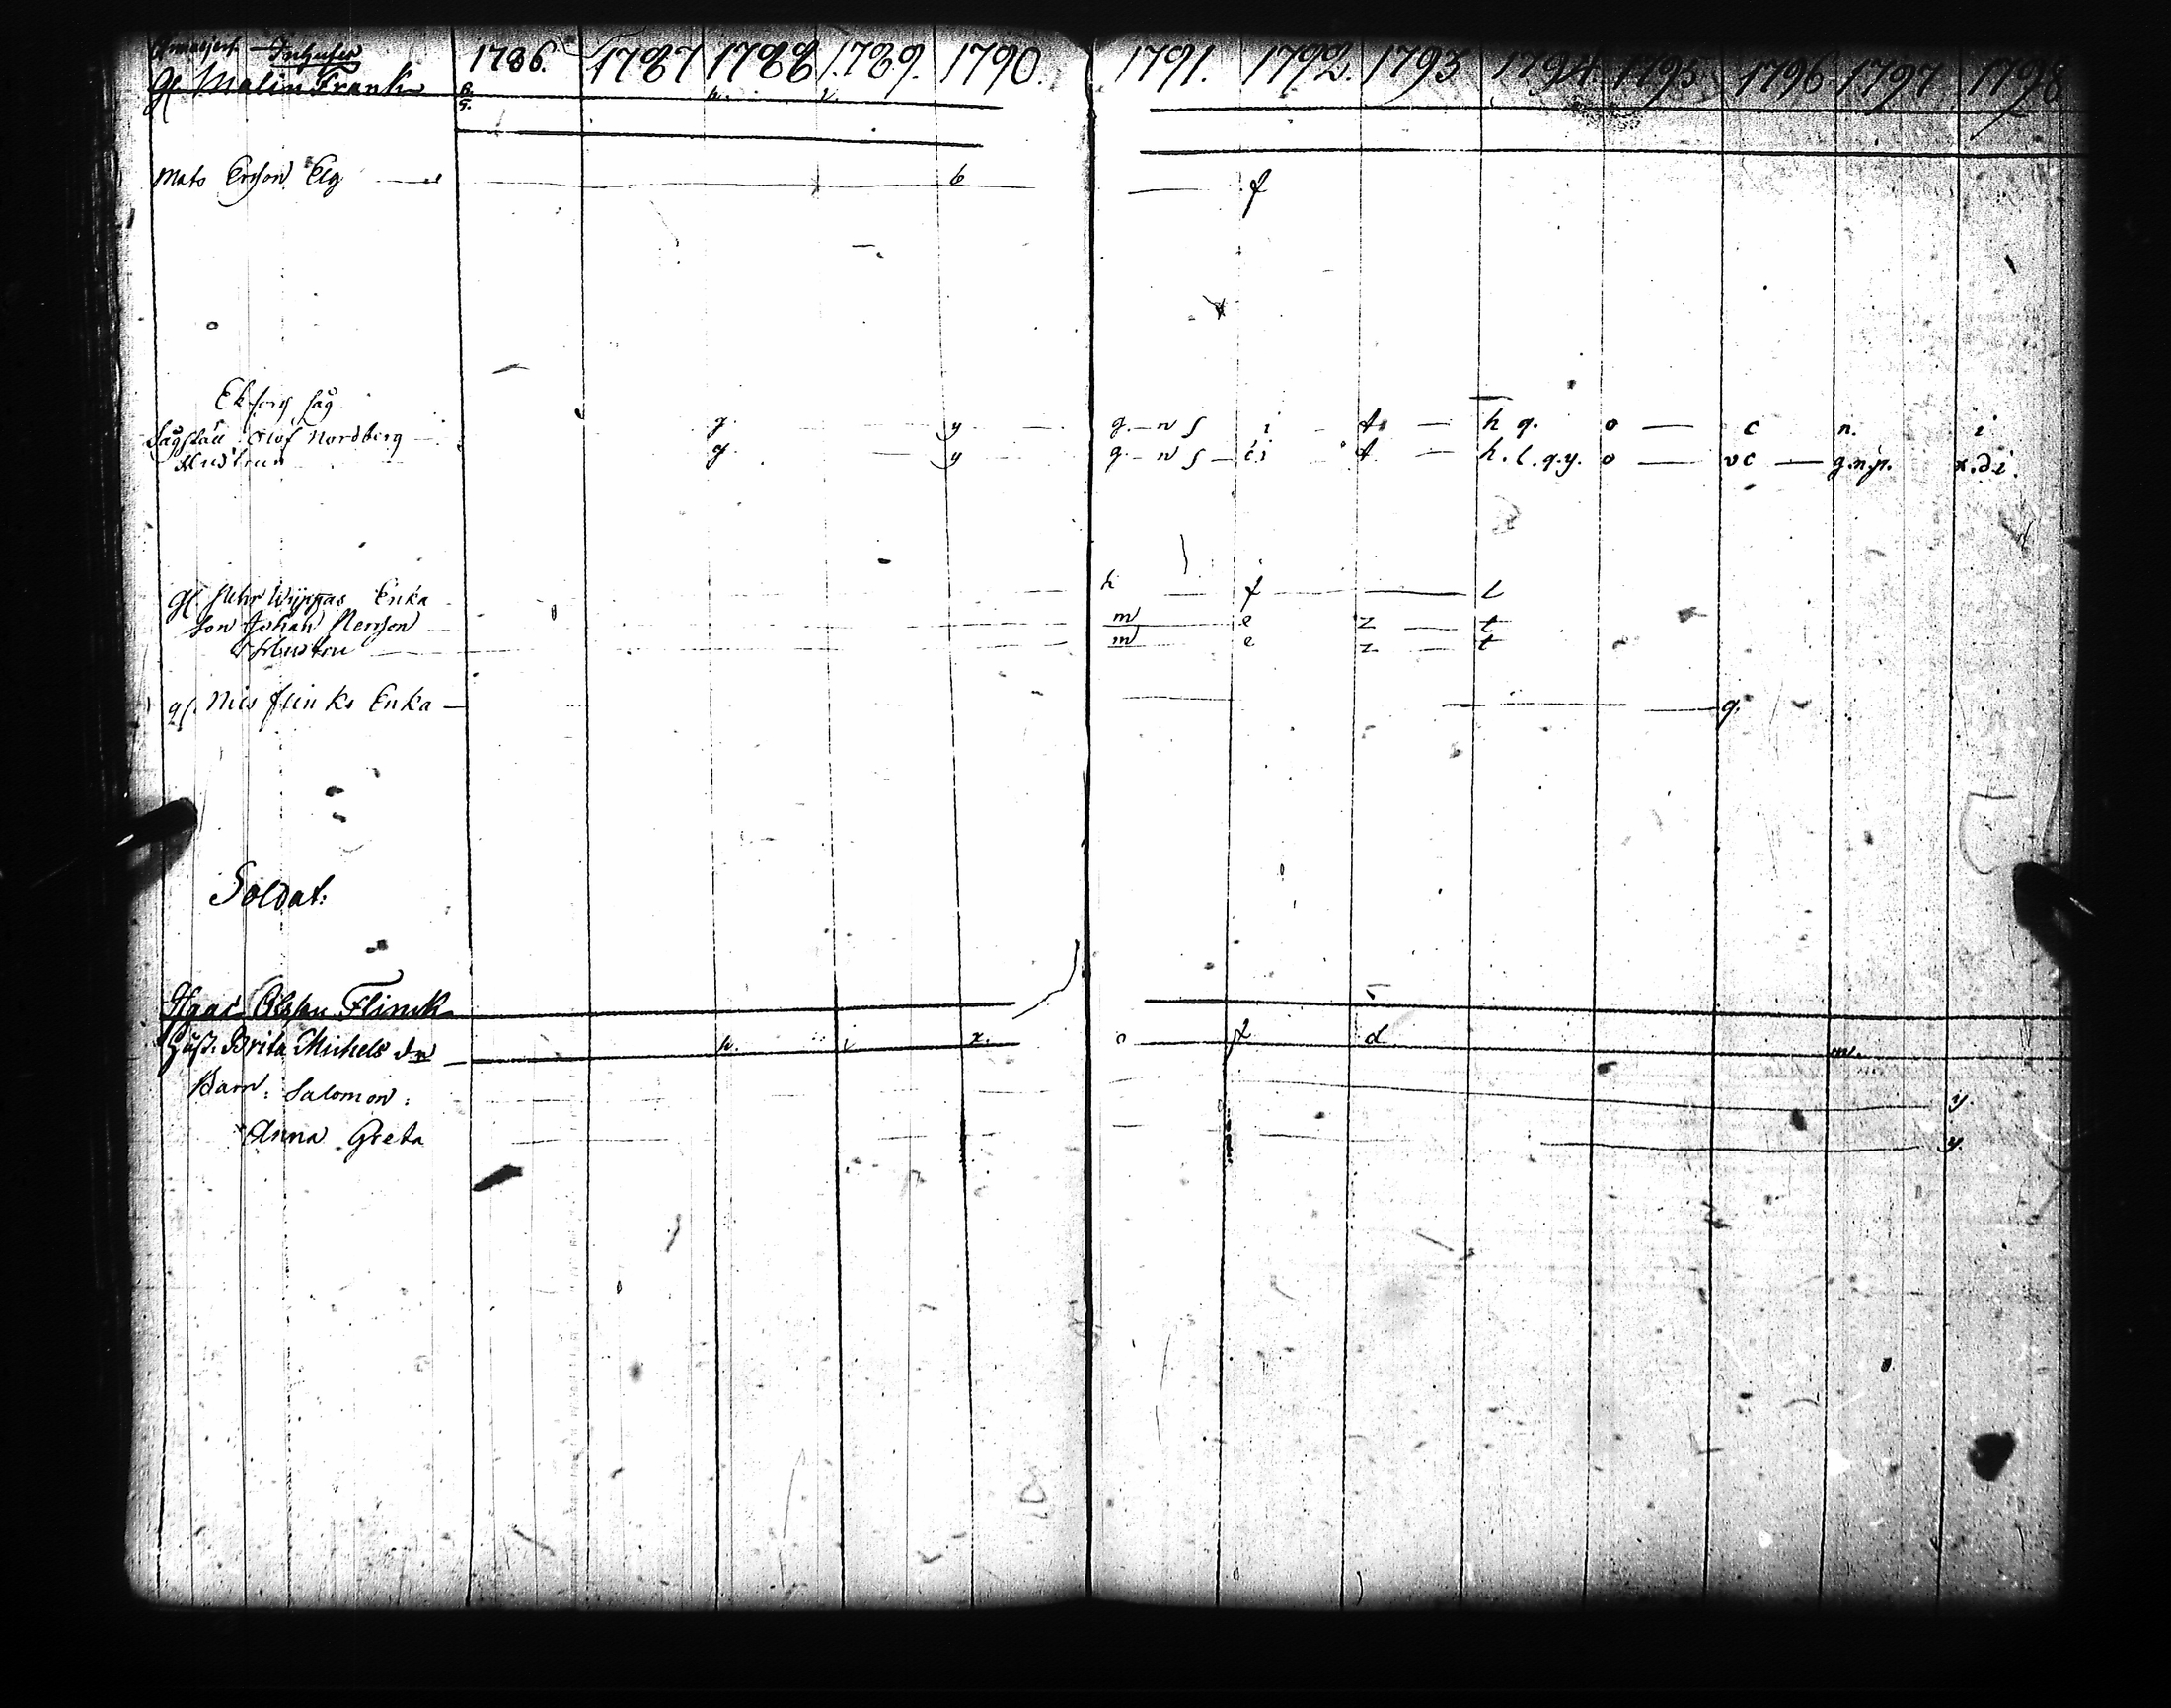 Inhyses 1786. 1787 1788 1789. 1790. 1791. 1792. 1793 1794 1795 1796 1797 1798
Gl. Malin Frank h. v.
Mats Ersson Elg b f
Ekfors såg.
Olof Nordberg g. y g. — n s i t. — h q. o — c n. i
Hustrun g. y g — n s — t — h. l. q. y. o — v c — g. n. p. x. d i.
gl. Enka h f l
Son Johan Persson m e z — t
Hustru m e z — t
gl. Nils Flinks Enka — q.
Soldat:
Isaac Olsson Flinck
Hust: Brita Michels dr h. i x. o f d m.
Barn: Salomon: y.
Anna Greta y.